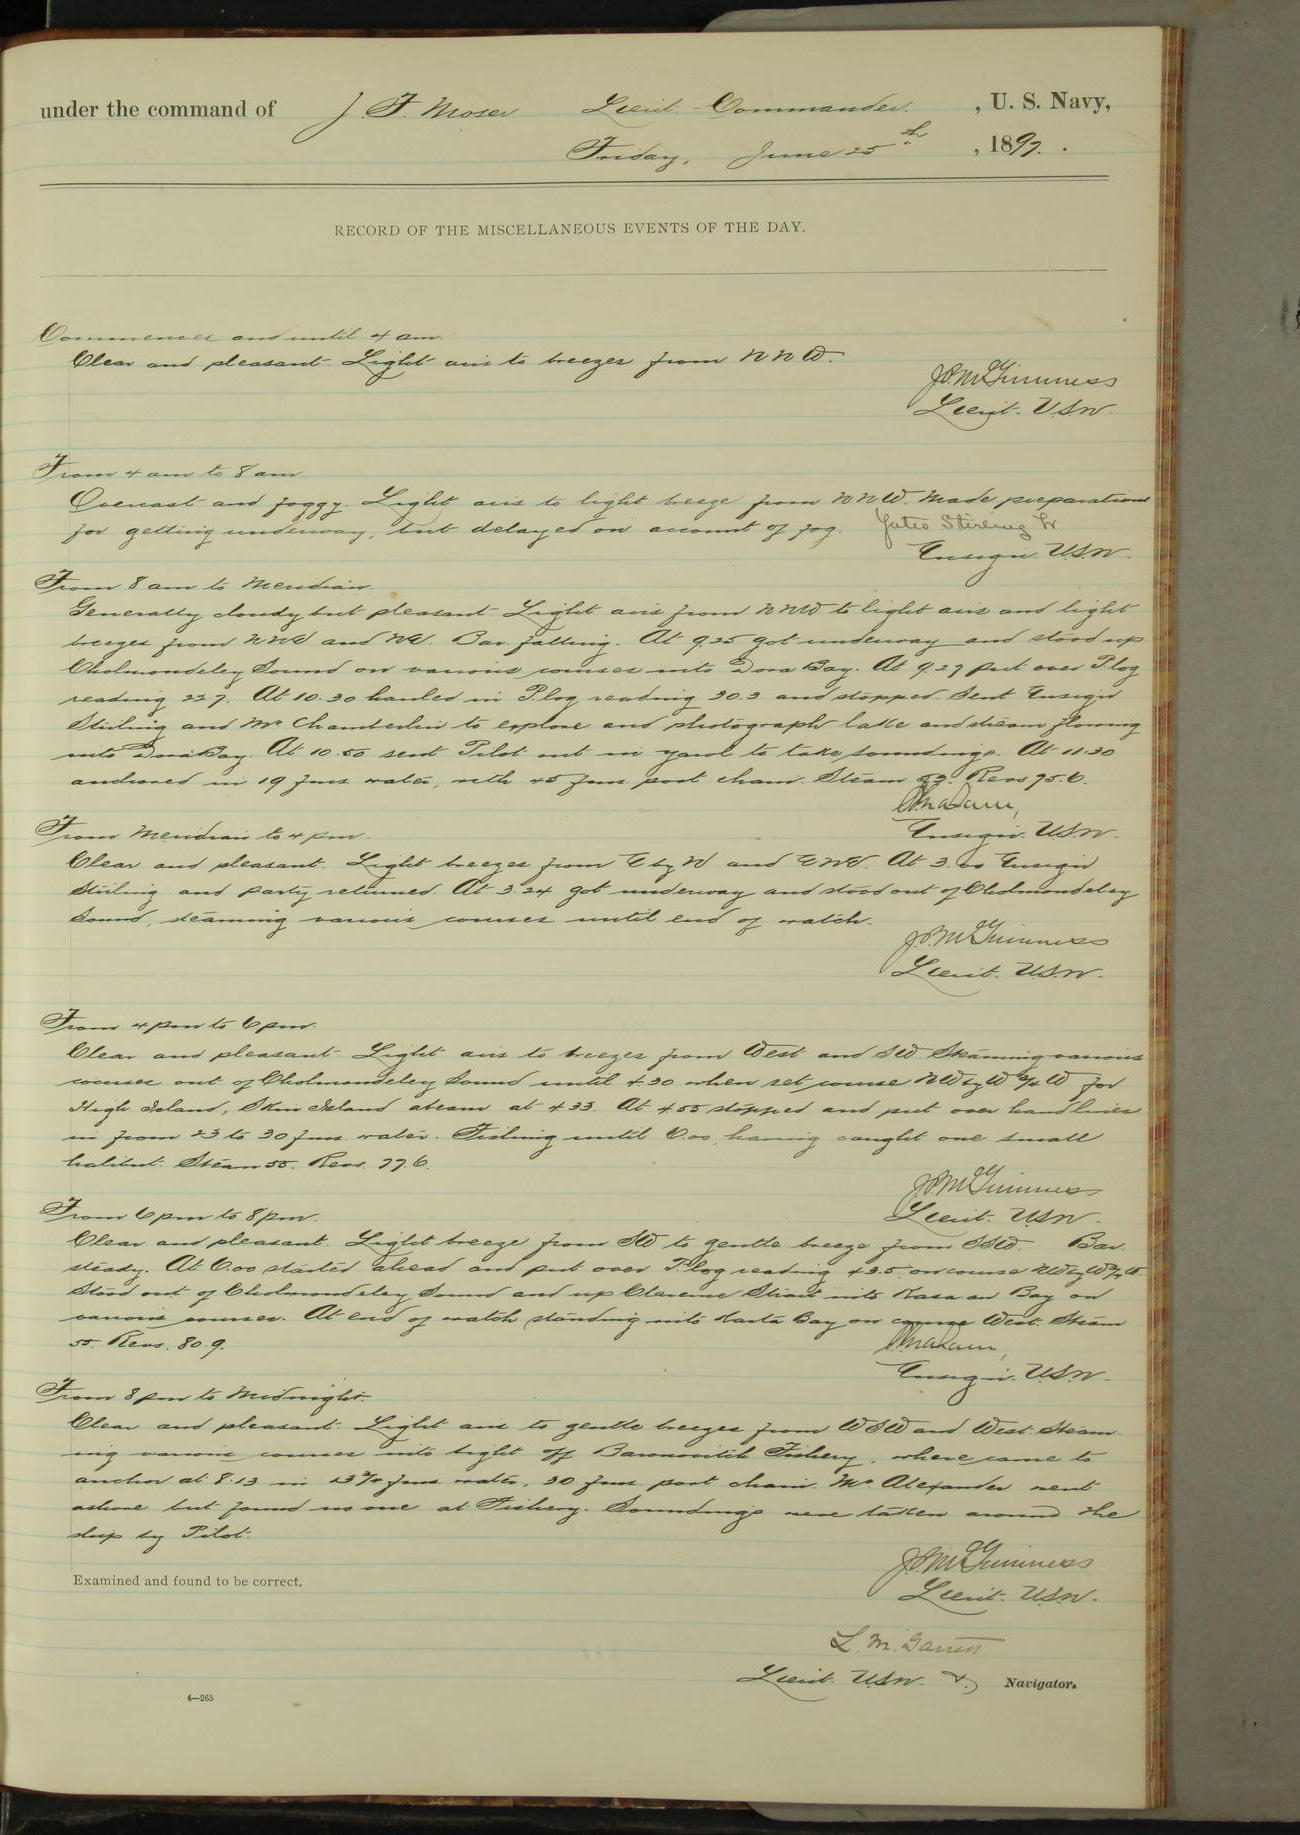 under the command of J. F. Moser Lieut. Commander. , U. S. Navy,
Friday, June 25th , 1897.
RECORD OF THE MISCELLANEOUS EVENTS OF THE DAY.
Commences and until 4 am.
Clear and pleasant. Light airs to breezes from NNW.
J.P. McGuinness
Lieut. U.S.N.
From 4 am to 8 am
Overcast and foggy. Light airs to light breeze from NNW. Made preparations
for getting underway, but delayed on account of fog. Yates Stirling Jr
Ensign U.S.N.
From 8 am to Meridian.
Generally cloudy but pleasant. Light airs from NNW to light airs and light
breezes from NNE and NE. Bar. falling. At 9.25 got underway and stood up
Cholmondeley Sound on various courses into Dora Bay. At 9.27 put over P. log
reading 22.7. At 10.30 hauled in P. log reading 30.3 and stopped. Sent Ensign
Stirling and Mr Chamberlin to explore and photograph lake and stream flowing
into Dora Bay. At 10.50 sent Pilot out in yawl to take soundings. At 11.30
anchored in 19 fms water, with 45 fms. port chain. Steam 52. Revs 75.6.
Ensign. U.S.N.
From Meridian to 4 pm.
Clear and pleasant. Light breezes from E by N and ENE. At 3.00 Ensign
Stirling and party returned. At 3.24 got underway and stood out of Cholmondeley
Sound, steaming various courses until end of watch.
J.P. McGuinness
Lieut. U.S.N.
From 4 pm to 6 pm.
Clear and pleasant. Light airs to breezes from West and SW. Steaming various
courses out of Cholmondeley Sound until 4.30 when set course NW by W 3/4 W for
High Island, Skin Island abeam at 4.33. At 4.55 stopped and put over hand lines
in from 23 to 30 fms. water. Fishing until 6.00, having caught one small
halibut. Steam 55. Revs. 77.6.
J.P. McGuinness
Lieut. U.S.N.
From 6 pm to 8 pm.
Clear and pleasant. Light breeze from SW to gentle breeze from SSW. Bar.
steady. At 6.00 started ahead and put over P. log reading 43.5, on course NW by W 3/4 W.
Stood out of Cholmondeley Sound and up Clarence Strait into Kasaan Bay on
various courses. At end of watch standing into Karta Bay on course West. Steam
55. Revs. 80.9.
Ensign. U.S.N.
From 8 pm to Midnight.
Clear and pleasant. Light airs to gentle breezes from WSW and West. Steam-
ing various courses into bight off Baronovitch Fishery, where came to
anchor at 8.13 in 13 3/4 fms. water, 30 fms. port chain. Mr Alexander went
ashore but found no one at Fishery. Soundings were taken around the
ship by Pilot.
J.P. McGuinness
Lieut. U.S.N.
Examined and found to be correct.
L. M. Garrett
Lieut. U.S.N. & Navigator.
4—265